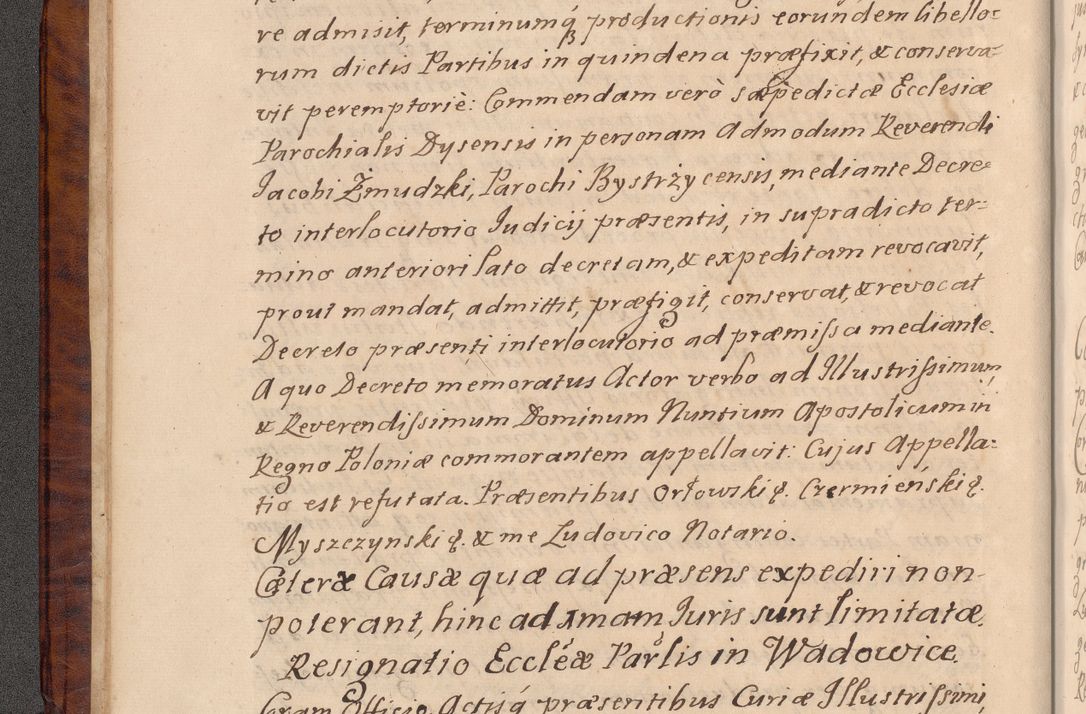 re admisit, terminumq́ productionis eorundem libello=
rum dictis Partibus in quindena præfixit, & conserva=
vit peremptoriè: Commendam verò sæpedictæ Ecclesiæ
Parochialis Dysensis in personam Admodum Reverendi
Iacobi Żmudzki, Parochi Bystrzycensis, mediante Decre=
to interlocutorio Iudicij præsentis, in supradicto ter=
mino anteriori lato decretam, & expeditam revocavit,
prout mandat, admittit, præfigit, conservat, & revocat
Decreto præsenti interlocutorio ad præmissa mediante.
A quo Decreto memoratus Actor verbo ad Illustrissimum,
& Reverendissimum Dominum Nuntium Apostolicum in
Regno Poloniæ commorantem appellavit: Cujus Appella=
tio est refutata. Præsentibus Orłowski ę. Czermieński ę.
Myszczynski ę. & me Ludovico Notario.
Cæteræ Causæ quæ ad præsens expediri non-
poterant, hinc ad 1mam Iuris sunt limitatæ.
Resignatio Eccleæ Parlis in Wadowice.
Coram Officio, Actisq́ præsentibus Curiæ Illustrissimi,